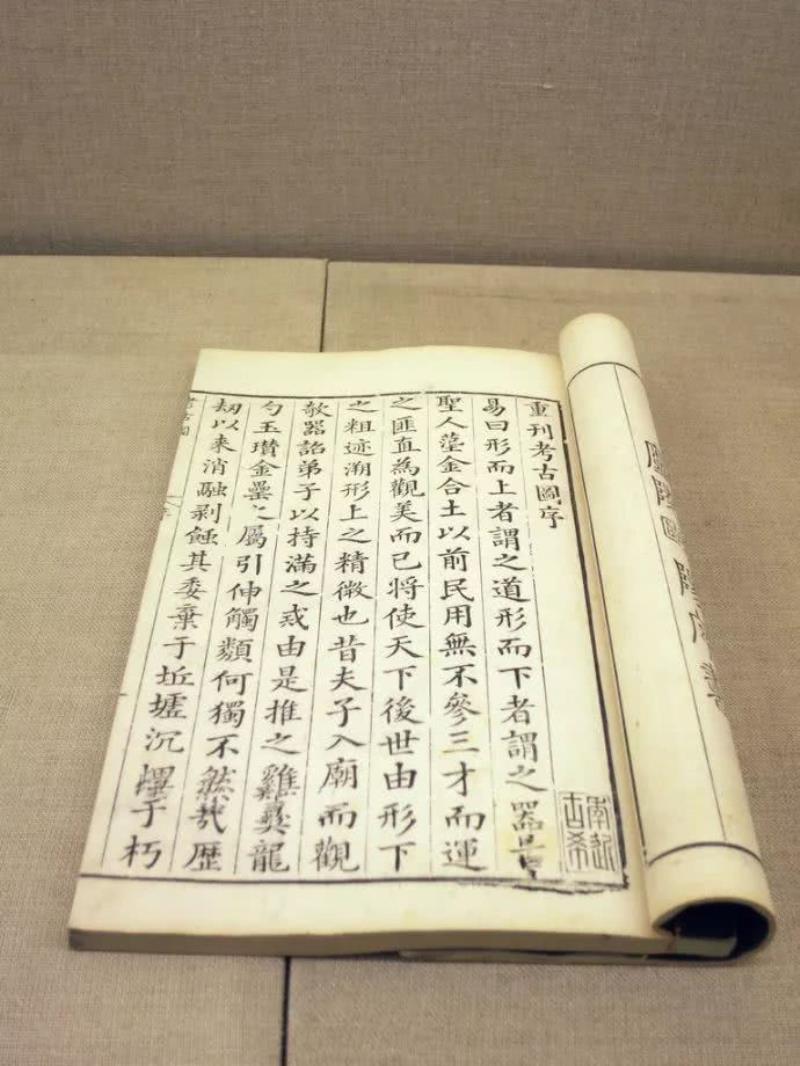 重刊考古圖序
易曰形而上者謂之道形而下者謂之器昔
聖人蓥金合土以前民用無不參三才而運
之匪直為觀美而已將使天下後世由形下
之粗迹溯形上之精微也昔夫子入廟而觀
欹器詔弟子以持滿之戒由是推之雞彝龍
勺玉瓚金罍之屬引伸觸類何獨不然哉歴
刼以來消融剥蝕其委棄于坵墟沉埋于朽
考古圖